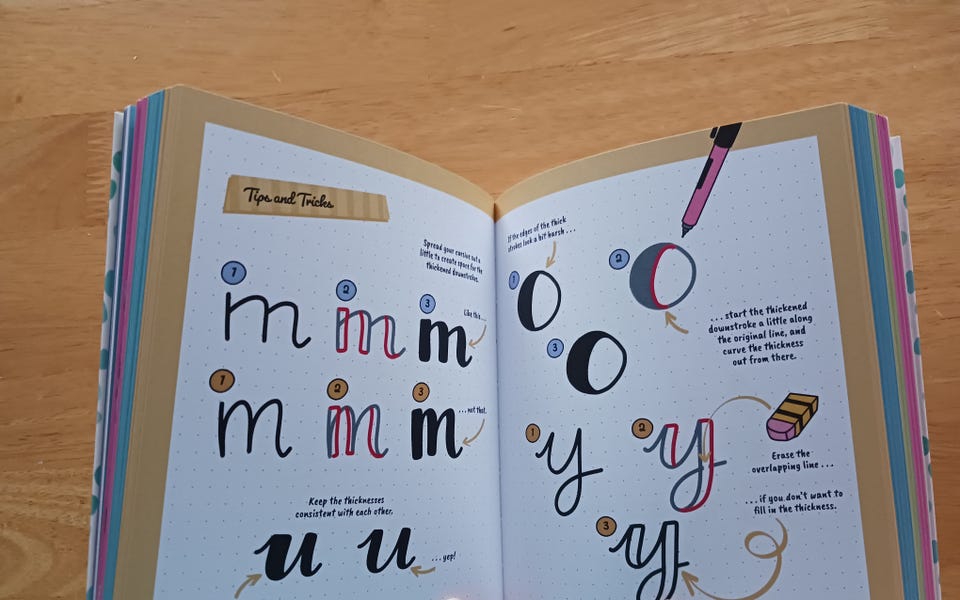 Tips and Tricks
Spread your cursive out a
little to create space for the
thickened downstroke.
1
2
3
Like this...
m
m
m
1
2
3
...not that.
m
m
m
Keep the thicknesses
consistent with each other.
u
u
...yep!
If the edges of the thick
strokes look a bit harsh...
1
2
o
o
3
o
...start the thickened
downstroke a little along
the original line, and
curve the thickness
out from there.
1
2
y
y
Erase the
overlapping line...
...if you don't want to
fill in the thickness.
3
y